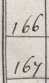 166
167